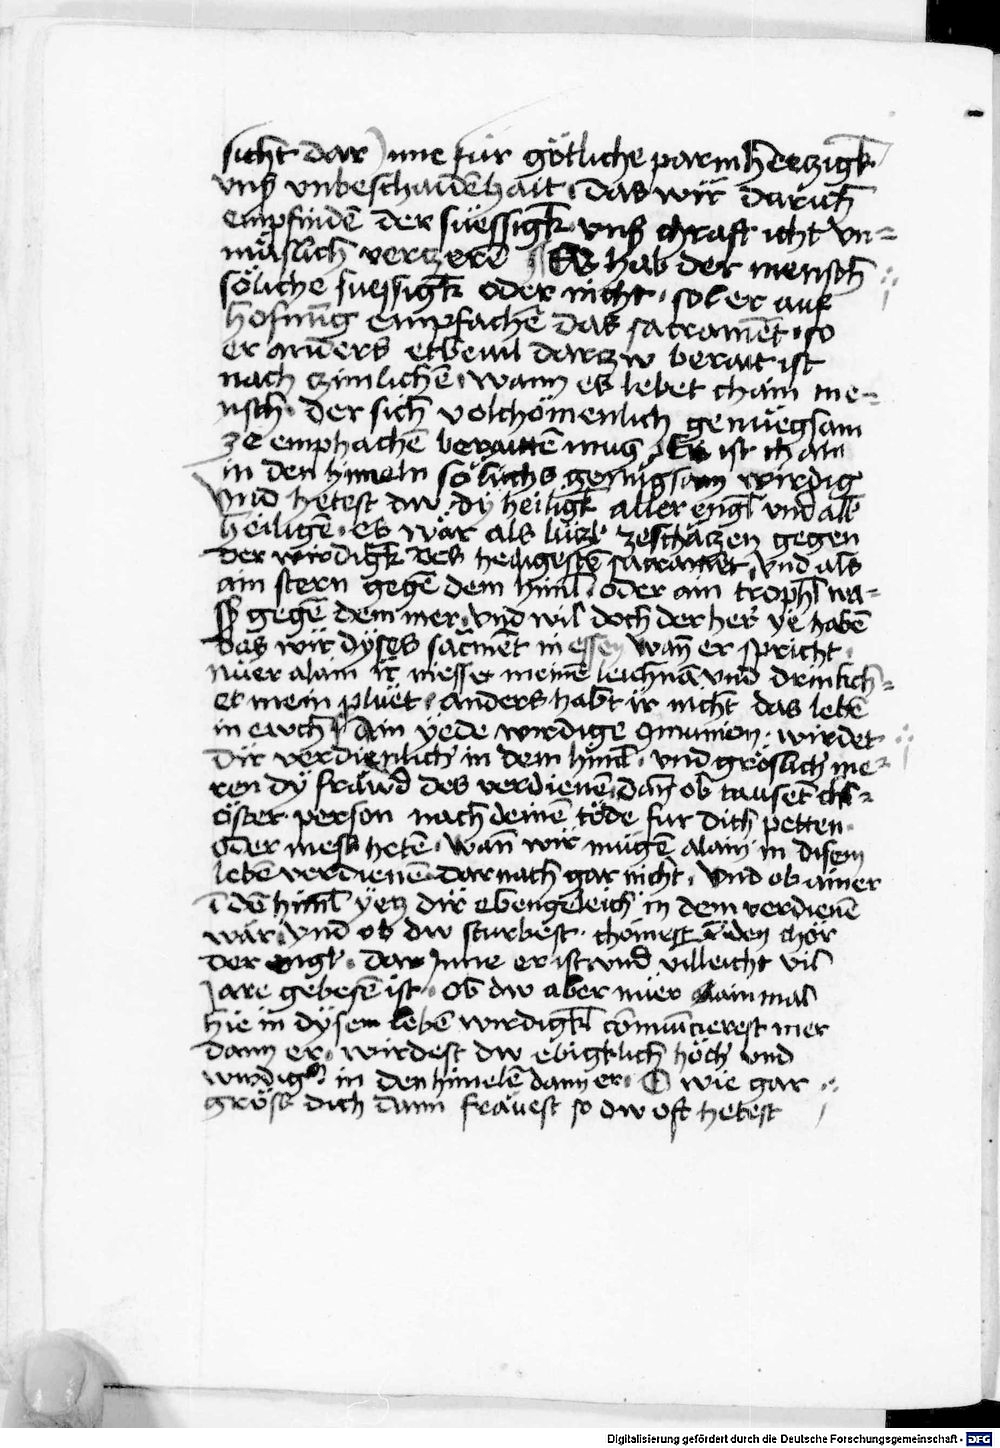 sicht dar Inne für götliche parmhertzigk
vnß vnbeschaidēhait · das wir daruch
empfindē der süessigk · vnß chraft icht vn=
mäslich verzere Es hab der mensch
söliche suessigk oder nicht · sol er auf
hofnūg empfachē das sacramēt · so
er anders etbeuil darzw berait ist
nach czimlichē · wann es lebet chain me=
nsch · der sich volchömenlich genuegsam
ze emphachē beraittē mug Er ist chain
in den himeln sölichs genugsam wirdig
Vnd hetest dw dy heiligk aller engl vnd all
heiligē · es wär als lützl zeschätzen gegen
der wirdigk des heiligestē sacramēt · vnd als
ain stern gegē dem himl · oder ain trophl wa=
ss gegē dem mer · vnd wil doch der her ye habē
das wir dyses sacmēt in essen wañ er spricht ·
Nuer alain ir niesset meinē leichnā vnd drinkch=
et mein pluet · anders habt ir nicht das lebē
in ewch Ain yede wirdige 9munion · wirdet
dir verdienlich in dem himl · vnd gröslich me=
ren dy fräwd des verdienē · dañ ob tausēt chl=
öster person nach deinē tode fur dich petten ·
oder mess hetē · Wañ wir mügē alain in disem
lebē verdienē darnach gar nicht · Vnd ob ainer
ī dē himl yetz dir ebengeleich in dem verdienē
wär · vnd ob dw sturbest · chömest in den chör
der engl · dar Inne er ist vnd villeicht vil
Jare gebesē ist · Ob dw aber nuer ainmal
hie in dysem lebē wirdigkl comūicierest mer
dann er · wirdest dw ebigklich höch vnd
wirdig in den himelē dann er · O wie gar
grösl dich dann fräuest so dw oft hetest
Digitalisierung gefördert durch die Deutsche Forschungsgemeinschaft - DFG